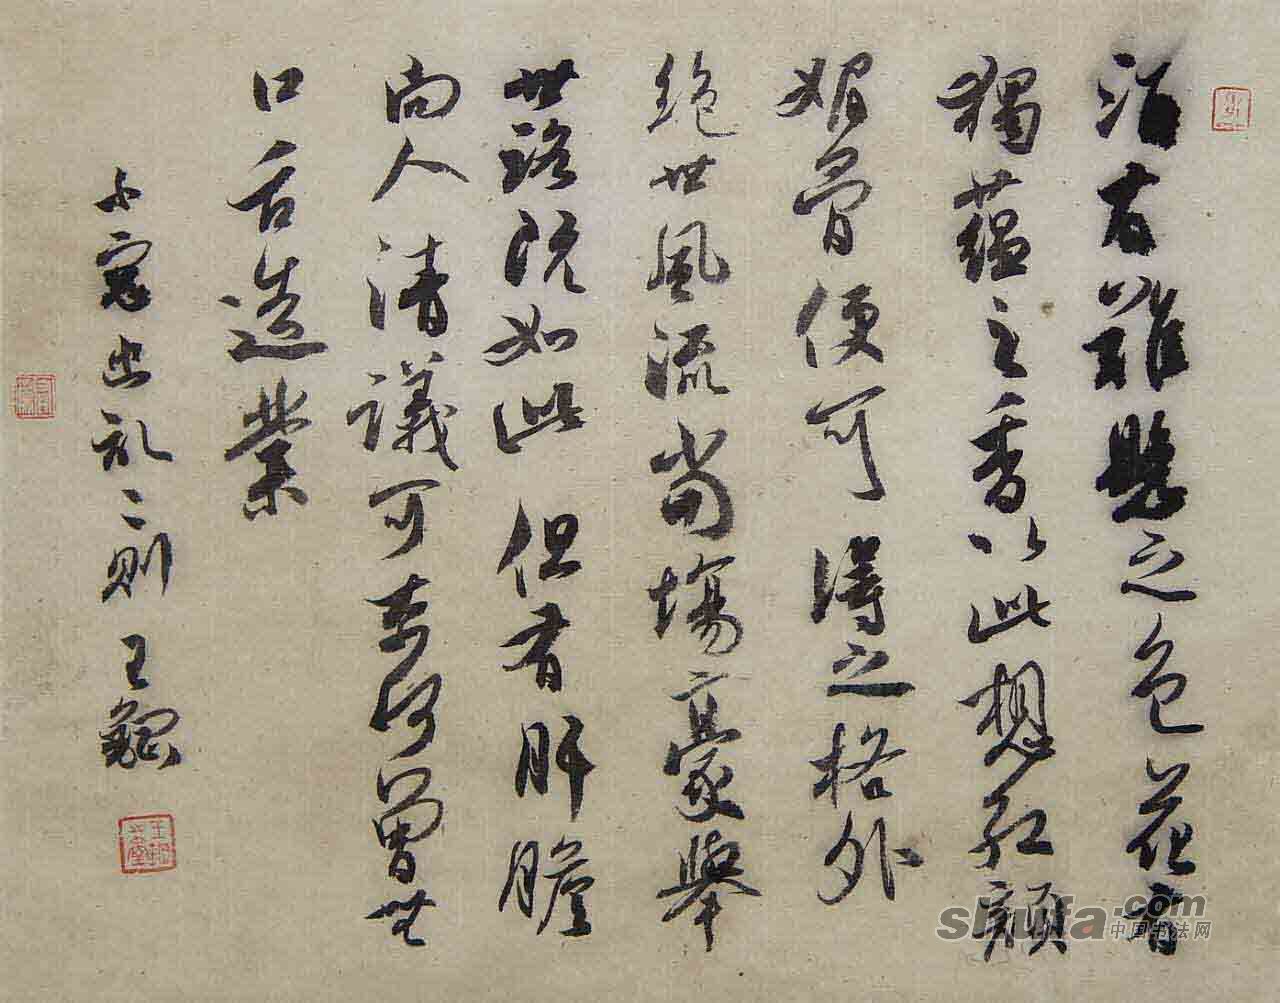 酒有難懸之色花有
獨蘊之香以此想紅顏
媚骨便可得之格外
絕世風流當場豪舉
世路既如此但有肝膽
向人清議可奈何曾無
口舌造業
小窗幽記二則 王
shufa.com
中国书法网